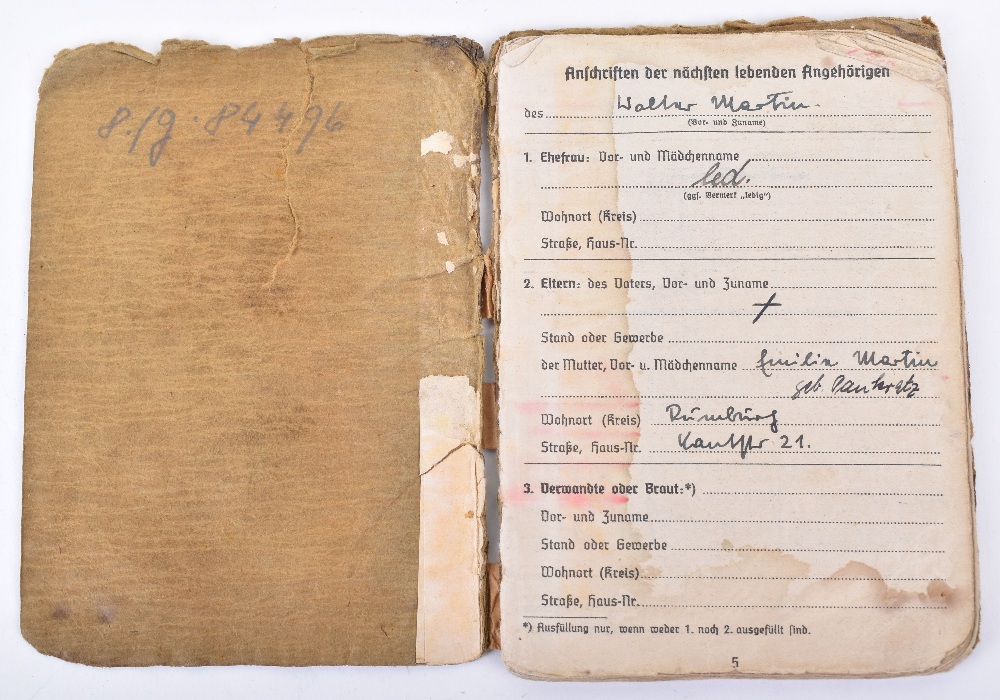 8./g. 84496
Anschriften der nächsten lebenden Angehörigen
des Walter Martin.
(Vor- und Zuname)
1. Ehefrau: Vor- und Mädchenname
led.
(ggf. Vermerk „ledig“)
Wohnort (Kreis)
Straße, Haus-Nr.
2. Eltern: des Vaters, Vor- und Zuname
Stand oder Gewerbe
der Mutter, Vor- u. Mädchenname Emilia Martin
geb Pankratz
Wohnort (Kreis) Rumburg
Straße, Haus-Nr. Kantstr 21.
3. Verwandte oder Braut:*)
Vor- und Zuname
Stand oder Gewerbe
Wohnort (Kreis)
Straße, Haus-Nr.
*) Ausfüllung nur, wenn weder 1. noch 2. ausgefüllt sind.
5